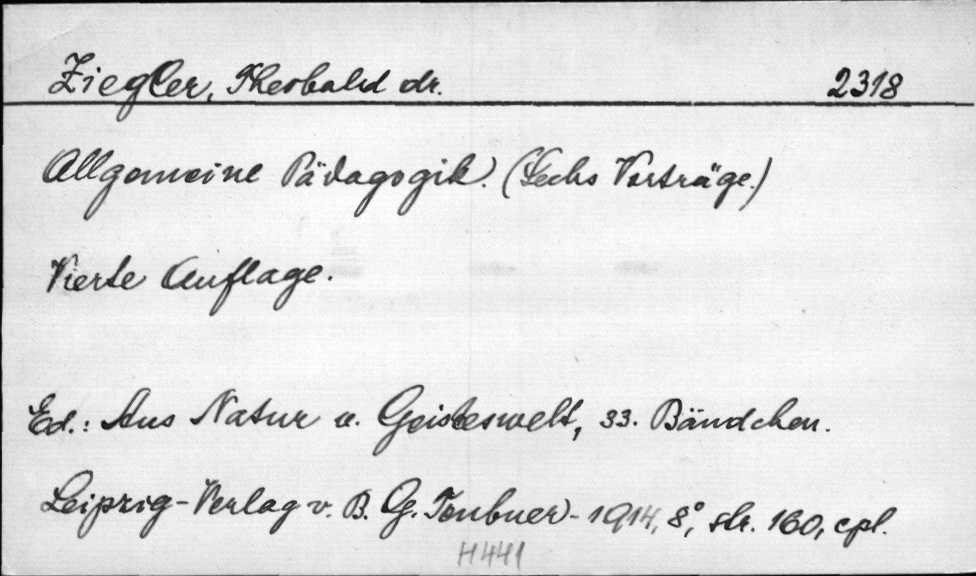 Ziegler, Theobald dr. 2318
Allgemeine Pädagogik. (Sechs Vorträge.)
Vierte Auflage.
Ed.: Aus Natur u. Geisteswelt, 33. Bändchen.
Leipzig - Verlag v. B. G. Teubner - 1914, 8°, str. 160, cpl.
H441